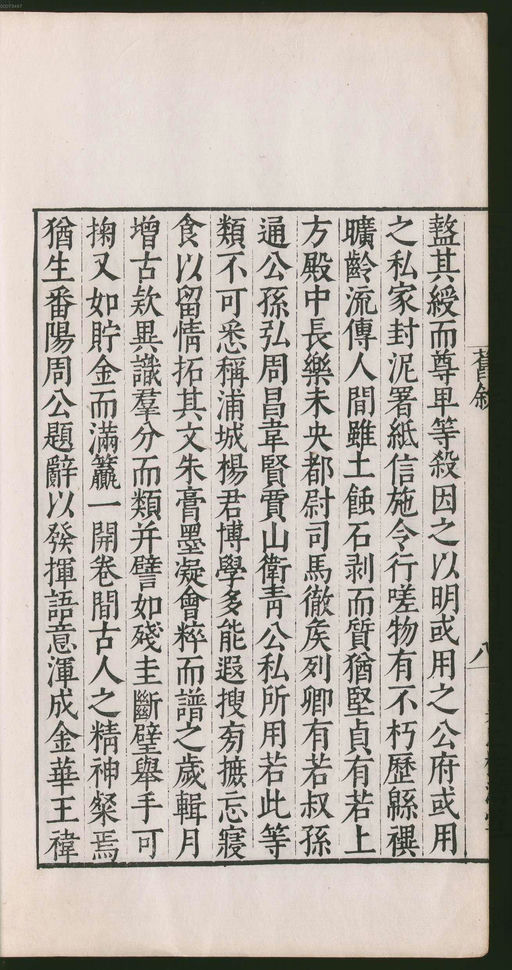 盭其綬而尊卑等殺因之以明或用之公府或用
之私家封泥署紙信施令行嗟物有不朽歷緜禩
曠齡流傳人間雖土蝕石剥而質猶堅貞有若上
方殿中長樂未央都尉司馬徹矦列卿有若叔孫
通公孫弘周昌韋賢賈山衛青公私所用若此等
類不可悉稱浦城楊君博學多能遐搜旁摭忘寢
食以留情拓其文朱膏墨凝會粹而譜之歲輯月
增古欵異識羣分而類并譬如殘圭斷璧舉手可
掬又如貯金而滿籯一開卷間古人之精神粲焉
猶生番陽周公題辭以發揮語意渾成金華王禕
舊敘
八